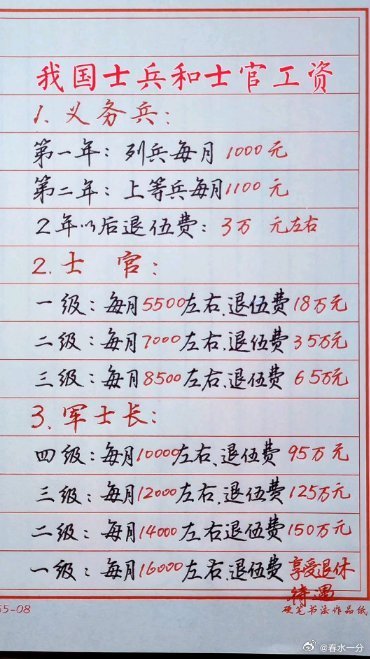 我国士兵和士官工资
1.义务兵:
第一年:列兵每月1000元
第二年:上等兵每月1100元
2年以后退伍费:3万元左右
2.士官:
一级:每月5500左右、退伍费18万元
二级:每月7000左右、退伍费35万元
三级:每月8500左右、退伍费65万元
3.军士长:
四级:每月10000左右、退伍费95万元
三级:每月12000左右、退伍费125万元
二级:每月14000左右退伍费150万元
一级:每月16000左右、退伍费享受退休
待遇
55-08
硬笔书法作品纸
@春水一分